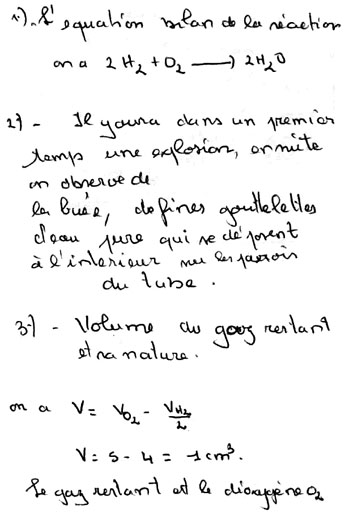 1). L'equation bilan de la réaction
on a 2H₂ + O₂ ⟶ 2H₂O
2) - Il youra dans un premier
temps une explosion, ensuite
on observe de
la buée, de fines gouttelettes
d'eau pure qui se déposent
à l'intérieur sur les parois
du tube.
3-) - Volume du gaz restant
et sa nature.
on a V = V_O₂ - V_H₂/2
V = 5 - 4 = 1cm³.
Le gaz restant est le dioxygène O₂